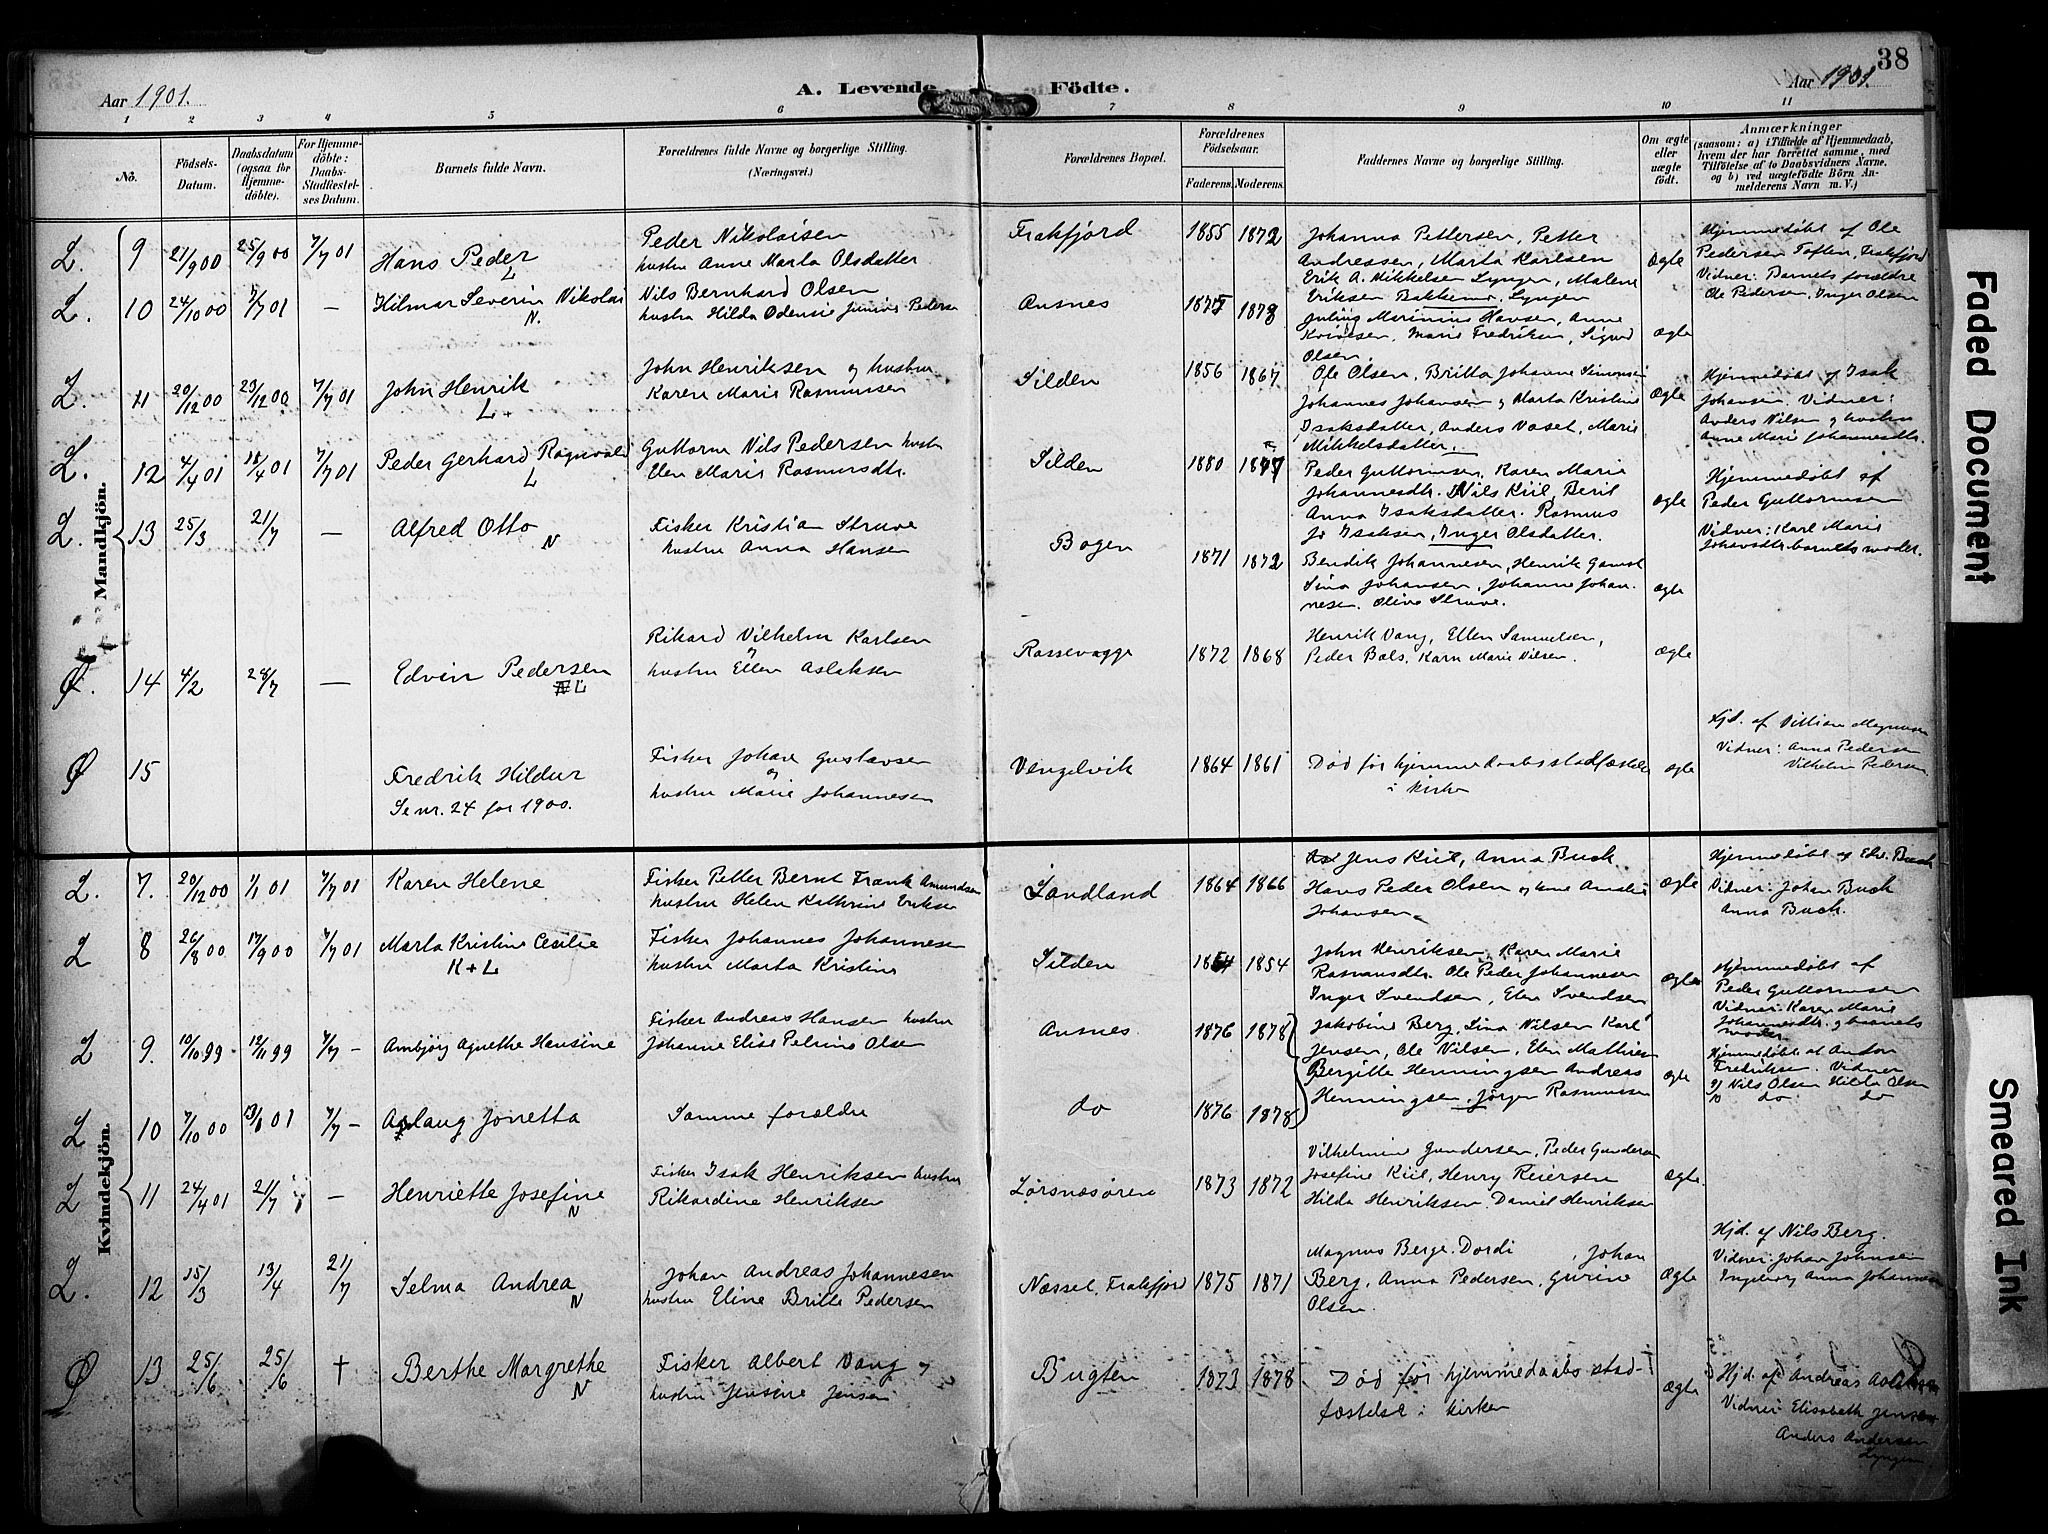 38
Aar 1901.
A. Levende
Födte.
Aar 1901.
1 2 3 4 5 6 7 8 9 10 11
No.
Födsels-Datum.
Daabsdatum (ogsaa for Hjemmedöbte).
For Hjemmedöbte: Daabs-Stadfæstelses Datum.
Barnets fulde Navn.
Forældrenes fulde Navne og borgerlige Stilling.
(Næringsvei.)
Forældrenes Bopæl.
Forældrenes Födselsaar.
Faderens. Moderens.
Faddernes Navne og borgerlige Stilling.
Om ægte eller uægte födt.
Anmærkninger
(saasom: a) i Tilfælde af Hjemmedaab, hvem der har forrettet samme, med Tilföielse af to Daabsvidners Navne, og b) ved uægtefödte Börn Anmelderens Navn m. V.)
Mandkjön.
L. 9 21/9 00 25/9 00 7/7 01 Hans Peder L
Peder Nikolaisen
hustru Anne Marta Olsdatter
Frakfjord 1855 1872
Johanna Pettersen, Petter
Andreassen, Marta Karlsen
Erik A. Mikkelsen Lyngen, Malene
Eriksen Bakkemo, Lyngen
ægte
Hjemmedøbt af Ole
Pedersen Toften, Frakfjord
Vidner: Barnets forældre
Ole Pedersen, Inger Olsen
L. 10 24/10 00 7/7 01 — Hilmar Severin Nikolai N.
Nils Bernhard Olsen
hustru Hilda Odensie Junine Peders
Ansnes 1875 1878
Julius Marinius Hansen, Anne
Marie Fredriksen, Sigurd
Olsen
ægte
L. 11 20/12 00 23/12 00 7/7 01 John Henrik L +
John Henriksen og hustru
Karen Marie Rasmussen
Silden 1856 1867
Ole Olsen, Britta Johanne Simonsen
Johannes Johansen og Marta Kristine
Isaksdatter, Anders Vaset, Marie
Mikkelsdatter.
ægte
Hjemmedøbt af Isak
Johansen. Vidner:
Anders Nilsen og hustru
Anne Marie Johannesdtr.
L. 12 4/4 01 18/4 01 7/7 01 Peder Gerhard Ragnvald L
Guttorm Nils Pedersen hustru
Elen Marie Rasmusdtr.
Silden 1880 1877
Peder Guttormsen, Karen Marie
Johannesdtr. Nils Kiil, Berit
Anna Isaksdatter. Rasmus
Jo Isaksen, Inger Olsdatter.
ægte
Hjemmedøbt af
Peder Guttormsen
Vidner: Karl Marie
Johansdtr. barnets moder.
L. 13 25/3 21/7 — Alfred Otto N
Fisker Kristian Struve
hustru Anna Hansen
Bogen 1871 1872
Bendik Johannesen, Henrik Gamst
Sina Johansen, Johanne Johannesen. Oliva Struve.
ægte
Ø. 14 4/2 28/7 — Edvin Pedersen L
Rikard Vilhelm Karlsen
og
hustru Ellen Aslaksen
Rassevagge 1872 1868
Henrik Vang, Ellen Samuelsen,
Peder Bals, Karn Marie Nilsen.
ægte
Ø 15 Fredrik Hildur
Se nr. 24 for 1900.
Fisker Johan Gustavsen
og
hustru Marie Johannesen
Vengelvik 1864 1861
Død før hjemmedaabsstadfæstelse
i kirke
ægte
Hjd. af Villian Magnusen
Vidner: Anna Pedersen
Vilhelm Pedersen.
Kvindekjön.
L. 7. 20/12 00 1/1 01 7/7 01 Karen Helene
Fisker Petter Bernt Frank Amundsen
hustru Helen Kathrine Eriksen
Sandland 1864 1866
Jens Kiil, Anna Buck
Hans Peder Olsen og Amalie
Johansen.
Ægte
Hjemmedöbt af Edv. Buck
Vidner: Johan Buck
Anna Buck.
L 8 26/8 00 17/9 00 7/7 01 Marta Kristine Cesilie
K + L
Fisker Johannes Johannesen
hustru Marta Kristine
Silden 1854 1854
John Henriksen, Karen Marie
Rasmusdtr. Ole Peder Johannesen
Inger Svendsen, Elen Svendsen
ægte
Hjemmedøbt af
Peder Guttormsen
Vidner: Karen Marie
Johannesdtr. og barnets
moder
L 9. 10/10 99 12/11 99 7/7 — Ambjörg Agnethe Hansine
Fisker Andreas Hansen hustru
Johanne Elise Pelrine Olsen
Ansnes 1876 1878
Jakobine Berg, Lina Nilsen Karl
Jensen, Ole Nilsen, Elen Mathisen
Bergitte Henningsen Andreas
Henningsen, Jörgen Rasmussen
ægte
Hjemmedøbt af Anton
Fredriksen. Vidner
9) Nils Olsen Hilda Olsen
10 do do
L 10 7/10 00 13/1 01 7/7 — Aslaug Jonetta
Samme forældre
do 1876 1878
L 11 24/4 01 21/7 — Henriette Josefine N
Fisker Isak Henriksen hustru
Rikardine Henriksen
Lørsnæsören 1873 1872
Vilhelmin Gundersen, Peder Gundersen
Josefine Kiil, Henry Reiersen
Hilda Henriksen. Daniel Henriksen
Ægte.
L. 12 15/3 13/4 21/7 Selma Andrea N
Johan Andreas Johannesen
hustru Eline Britte Pedersen
Næsset, Frakfjord 1875 1871
Magnus Berge. Dordi , Johan
Berg, Anna Pedersen, Gurine
Olsen.
Ægte
Hjd. af Nils Berg.
Vidner: Johan Johnsen
Ingeborg Anna Johannesen
Ø 13 25/6 25/6 † Berthe Margrethe N
Fisker Albert Vang og
hustru Jensine Jensen
Bugten 1873 1878
Död før hjemmedaabs stad-
fæstelse i kirken
Ægte
Hjd. af Andreas
Vidner Elisabeth Jensen
Anders Andersen
Lyngen
Faded Document
Smeared Ink